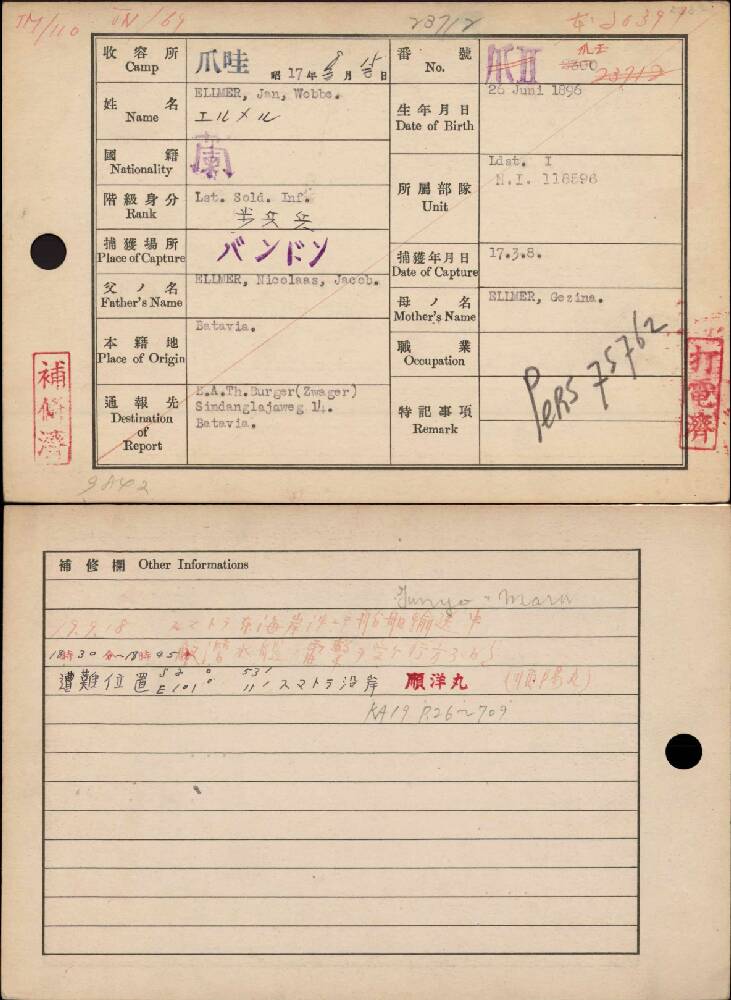 JM/110 JN/69 23712
收容所 Camp 爪哇 昭17年8月15日
番號 No. 爪II 爪王 23712
姓名 Name ELLMER, Jan, Wobbe. エルメル
生年月日 Date of Birth 26 Juni 1896
國籍 Nationality 蘭
所屬部隊 Unit Ldst. I
N.I. 118596
階級身分 Rank Lst. Sold. Inf.
歩兵兵
捕獲場所 Place of Capture バンドン
捕獲年月日 Date of Capture 17.3.8.
父ノ名 Father's Name ELLMER, Nicolaas, Jacob.
母ノ名 Mother's Name ELLMER, Gezina.
本籍地 Place of Origin Batavia.
職業 Occupation
通報先 Destination of Report
E.A.Th.Burger(Zwager)
Sindanglajaweg 14.
Batavia.
特記事項 Remark
PERS 75762
補修濟
打電濟
補修欄 Other Informations
Junyo-Maru
19.9.18 スマトラ東海岸沖ニテ船舶輸送中
18時30分〜18時45分
遭難位置 スマトラ沿岸 順洋丸
KA19 P.26~709